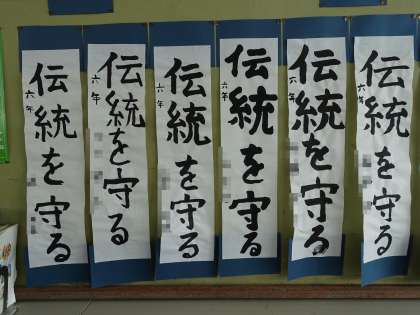 伝統を守る
六年
伝統を守る
六年
伝統を守る
六年
伝統を守る
六年
伝統を守る
六年
伝統を守る
六年